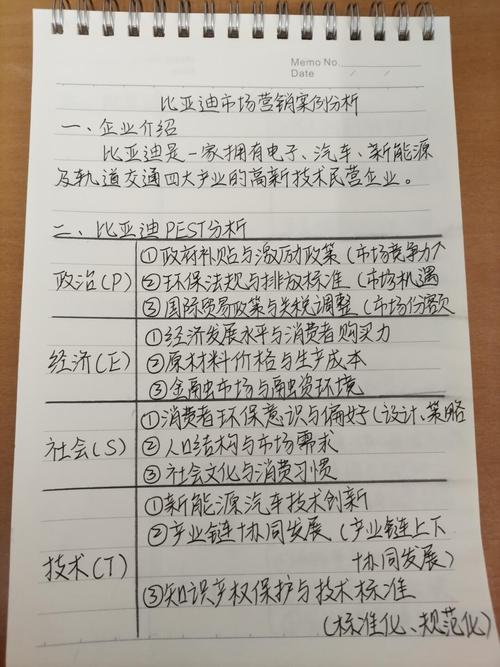 Memo No.
Date / /
比亚迪市场营销案例分析
一、企业介绍
比亚迪是一家拥有电子、汽车、新能源
及轨道交通四大产业的高新技术民营企业。
二、比亚迪PEST分析
政治(P)
①政府补贴与激励政策(市场竞争力个
②环保法规与排放标准(市场机遇
③国际贸易政策与关税调整(市场份额
经济(E)
①经济发展水平与消费者购买力
②原材料价格与生产成本
③金融市场与融资环境
社会(S)
①消费者环保意识与偏好(设计、策略
②人口结构与市场需求
③社会文化与消费习惯
技术(T)
①新能源汽车技术创新
②产业链协同发展(产业链上下
协同发展)
③知识产权保护与技术标准
(标准化、规范化)